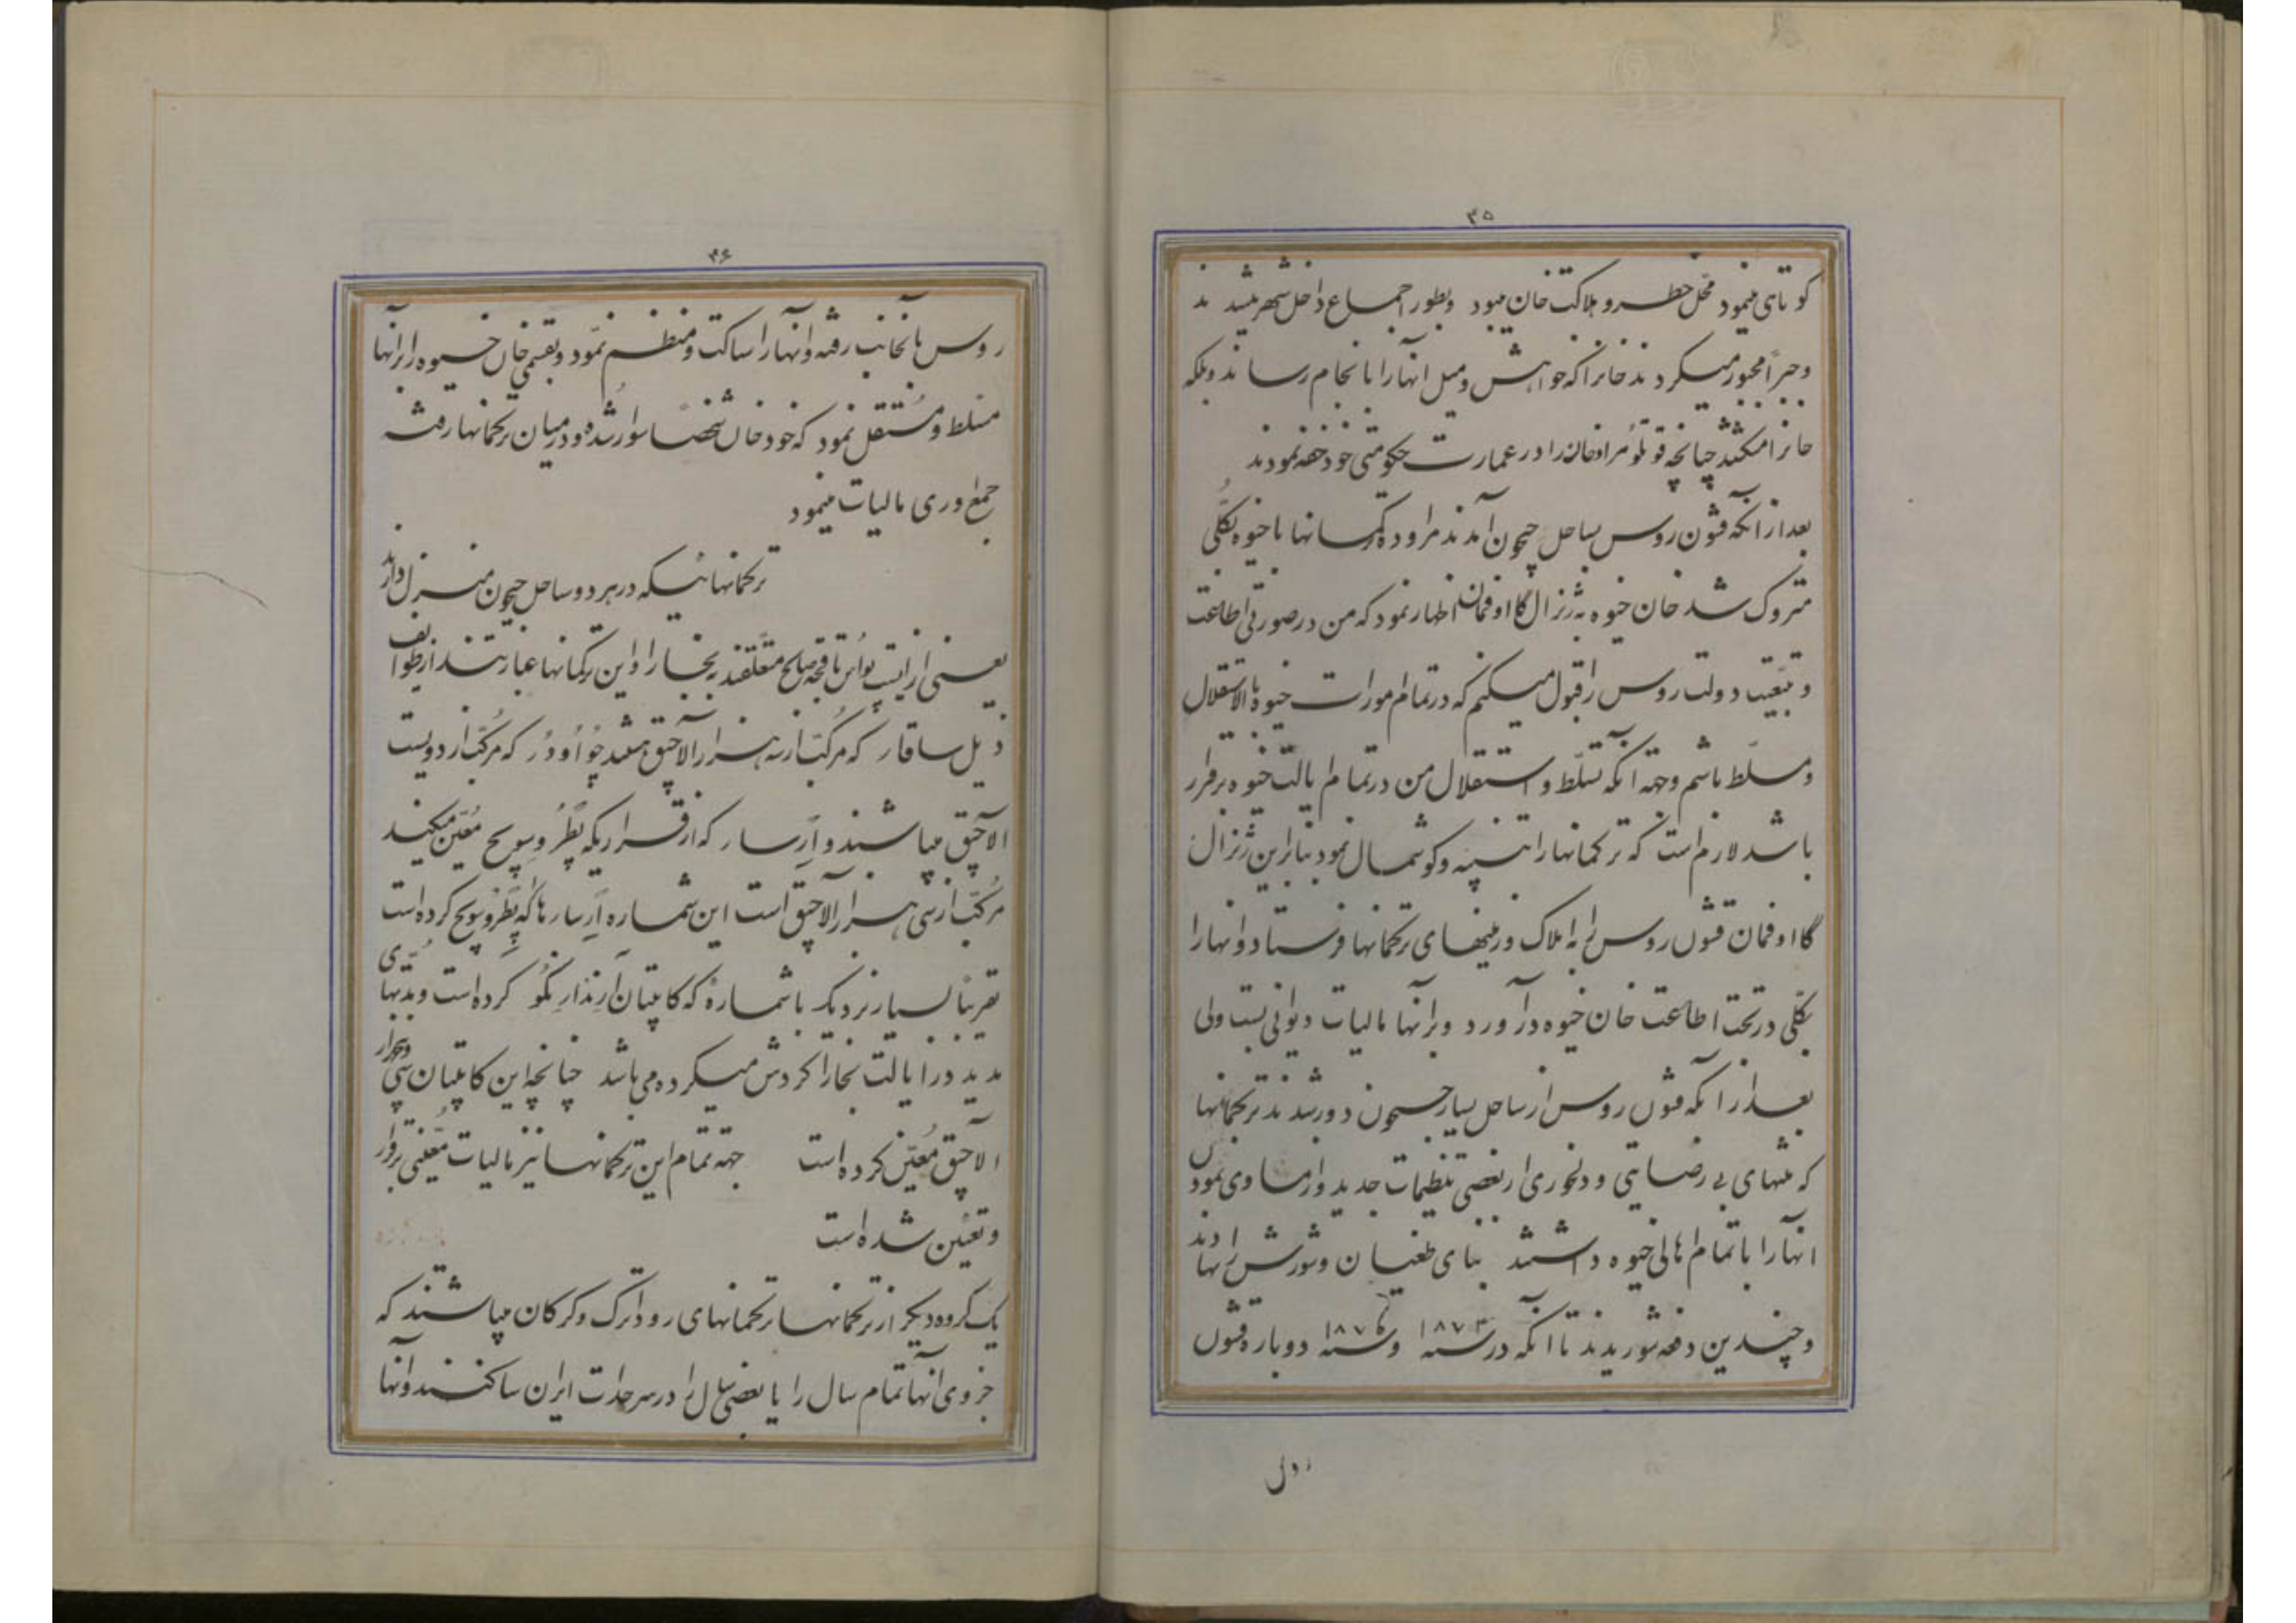 ۳۵
کوتاهی مینمود محل خطر و هلاکت خان میبود و بطور اجماع داخل شهر میشدند
و جبراً مجبور میکردند خانرا که خواهش و میل آنها را بانجام رساند و بلکه
خانرا میکشتند چنانچه قوتلو مراد خان را در عمارت حکومتی خود خفه نمودند
بعد از آنکه قشون روس بساحل جیحون آمدند مراوده ترکمانها با خیوه بکلّی
متروک شد خان خیوه به ژنرال گااوفمان اظهار نمود که من در صورتی اطاعت
و تبعیت دولت روس را قبول میکنم که در تمام امورات خیوه بالاستقلال
و مسلّط باشم و جهة آنکه تسلّط و استقلال من در تمام ایالت خیوه برقرار
باشد لازم است که ترکمانها را تنبیه و گوشمال نمود بنابراین ژنرال
گااوفمان قشون روس را به املاک و زمینهای ترکمانها فرستاد و آنها را
بکلّی در تحت اطاعت خان خیوه درآورد و برآنها مالیات دیوانی بست ولی
بعد از آنکه قشون روس از ساحل یسار جیحون دور شدند ترکمانها
که منتهای بی رضایتی و دلخوری از بعضی تنظیمات جدید و از مساوی نمودن
آنها را با تمام اهالی خیوه داشتند بنای طغیان و شورش را نهادند
و چندین دفعه شوریدند تا آنکه در سنه ۱۸۷۳ و سنه ۱۸۷۶ دوباره قشون
۳۶
روس بآنجانب رفته و آنها را ساکت و منظم نمود و بقسمی خان خیوه را برآنها
مسلّط و مستقل نمود که خود خان شخصاً سوار شده و در میان ترکمانها رفته
جمع آوری مالیات مینمود
ترکمانهائیکه در هر دو ساحل جیحون منزل دارند
یعنی از تا صالح متعلّقند به بخارا و این ترکمانها عبارتند از طوایف
ذیل ساقار که مرکّب از سه هزار آلاچیق چُوْاُودُر که مرکّب از دویست
آلاچیق میباشند و آرسار که از قراریکه پِطْرُوسِویچ معیّن میکند
مرکّب از سی هزار آلاچیق است این شماره آرسارها که پِطْرُوسِویچ کرده است
تقریباً بسیار نزدیک با شمارهٔ که کاپیتان کرده است و مدتهای
مدید در ایالت بخارا گردش میکرده می باشد چنانچه این کاپیتان سی و
آلاچیق معیّن کرده است جهة تمام این ترکمانها نیز مالیات معیّنی برقرار
و تعیین شده است
یک گروه دیگر از ترکمانها ترکمانهای رود اترک و گرگان میباشند که
جزوی آنها تمام سال را یا بعضی سال را در سرحدات ایران ساکنند و آنها